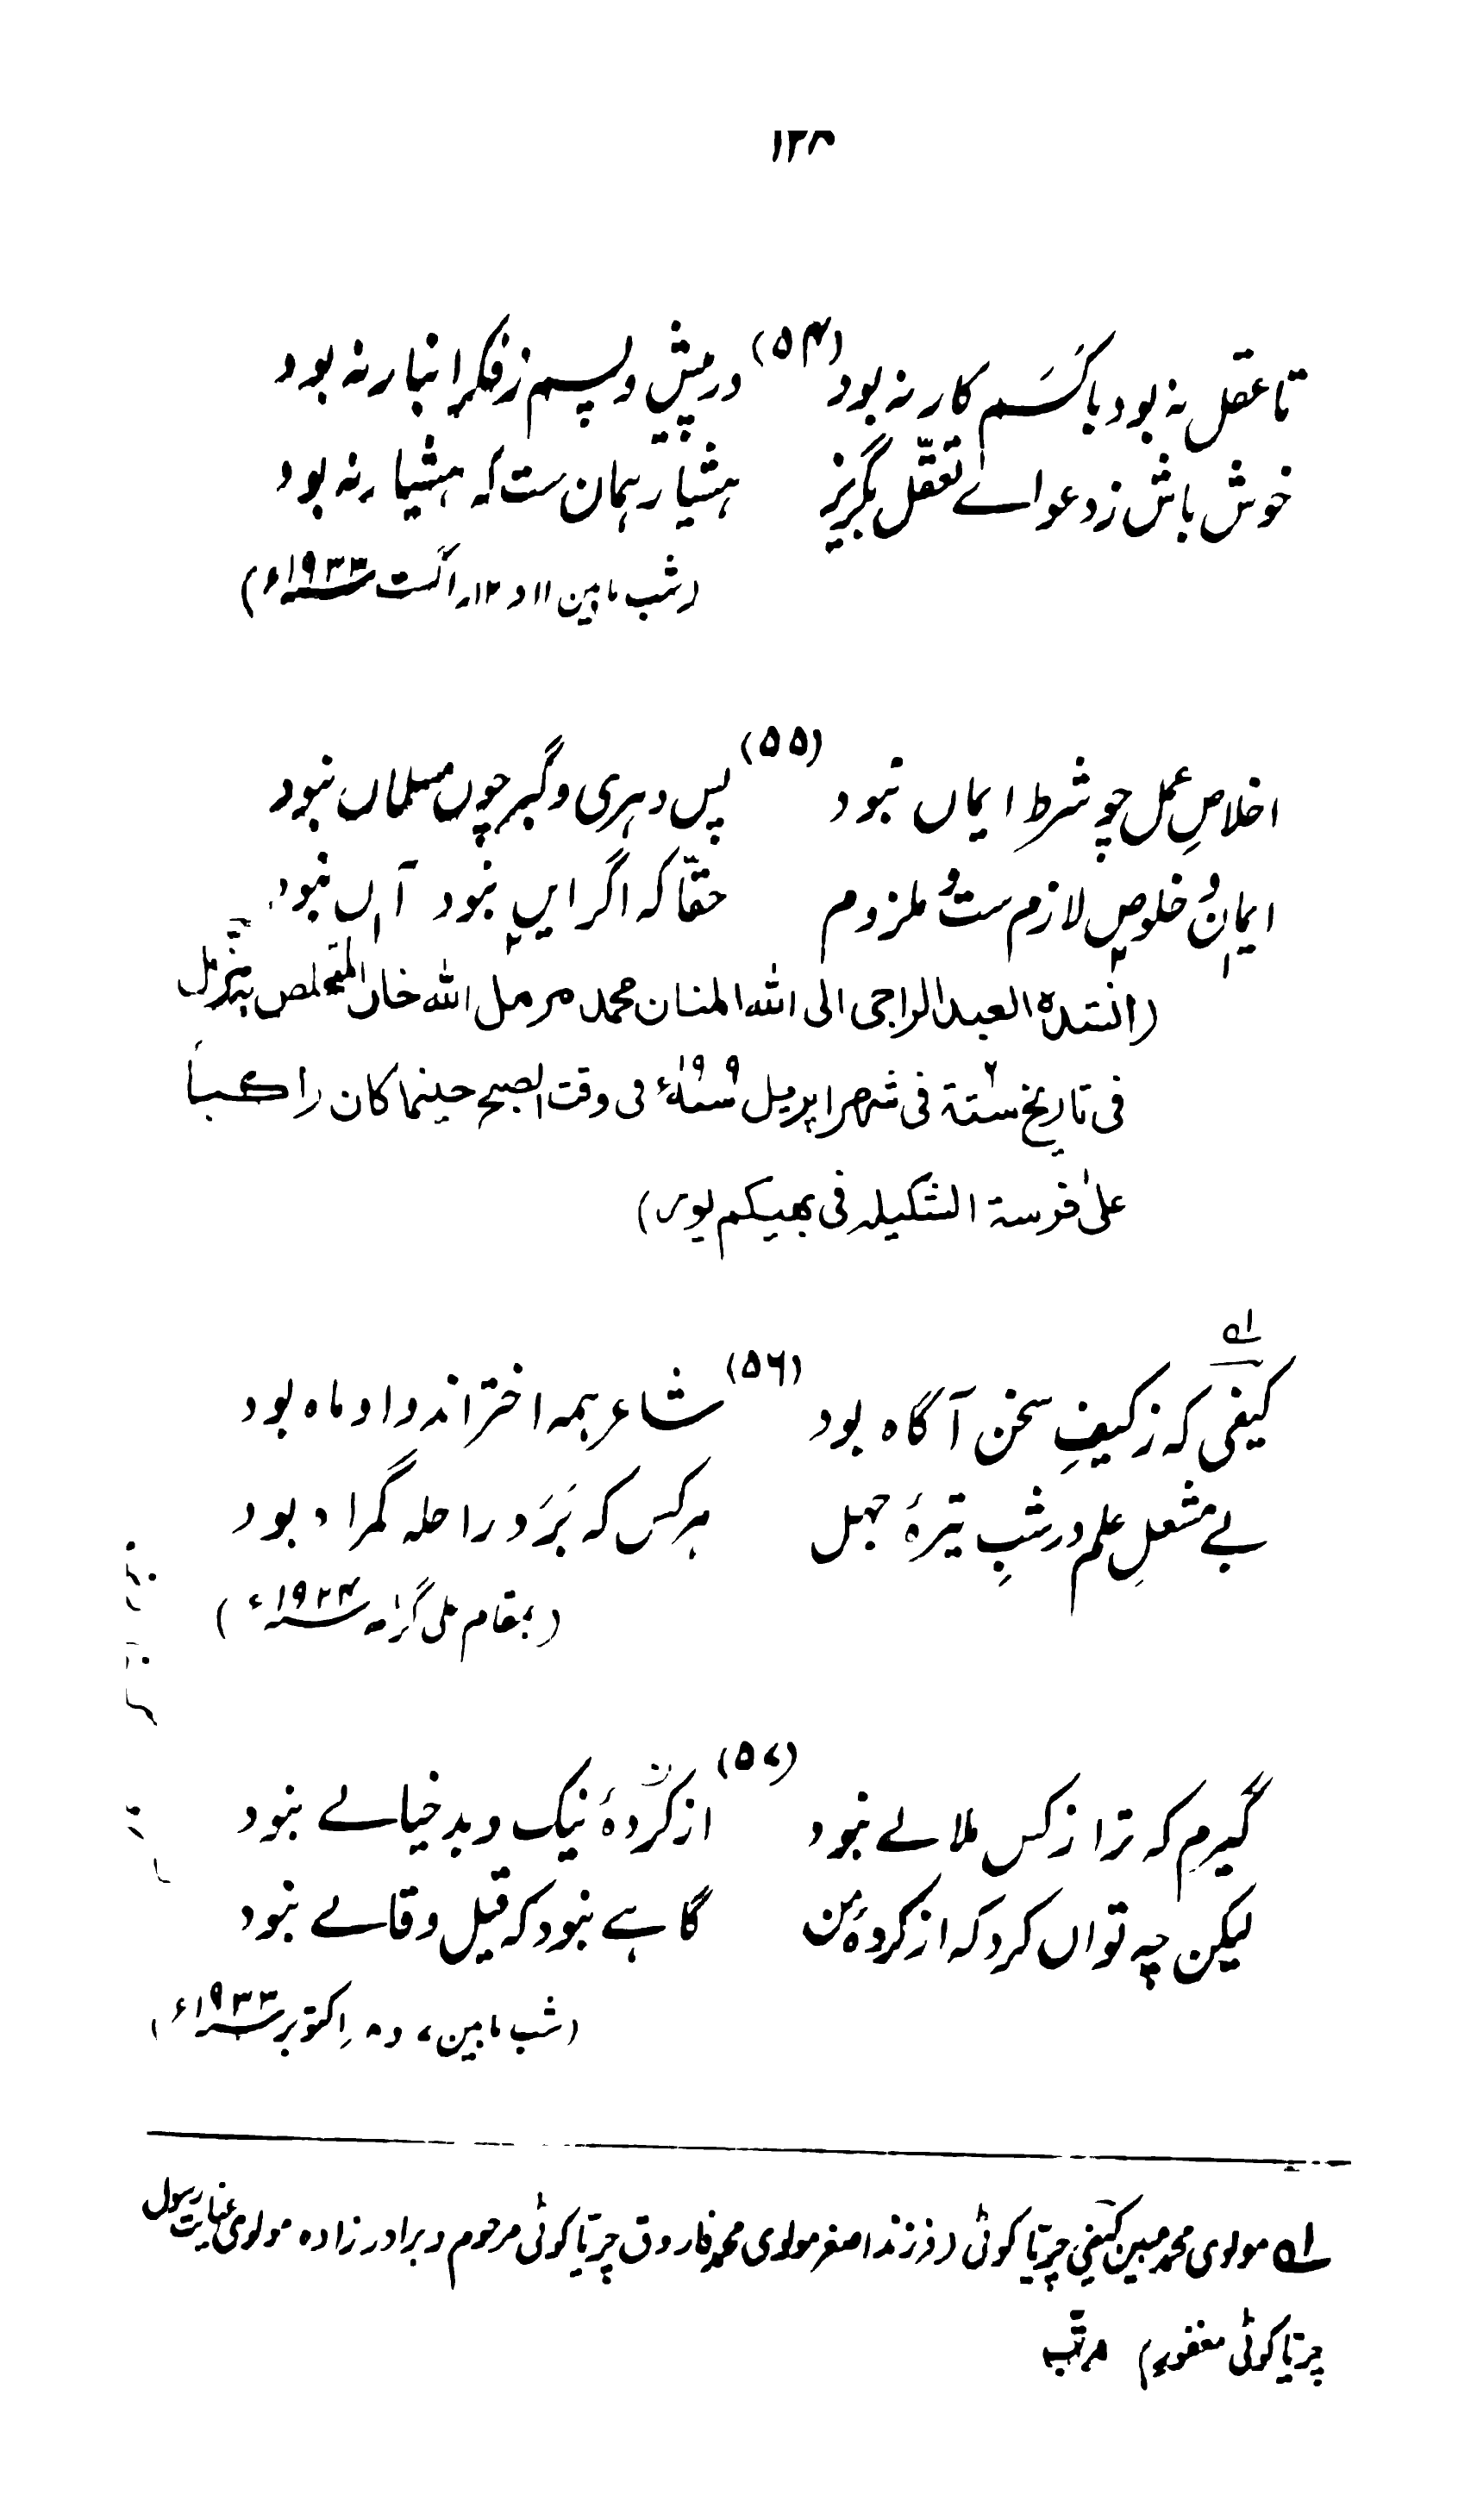 ۱۲۸
(۵۴)
تا عقل نہ بود با کَسَم کار نہ بود
در پیش و پسم ز فکر انبار نہ بود
خوش باش ز دعواے تعقّل بگریز
ہشیار ہمان ست کہ ہشیار نہ بود
(شب مابین ۱۱ و ۱۲ر اگست ۱۹۳۳ء)
(۵۵)
اخلاصِ عمل چو شرط ایماں نبود
پس دہری و گبر چون مسلمان نبود
ایمان و خلوص لازم ست و ملزوم
حقّا کہ اگر ایں نبود آں نبود
(انشدہ العبد الراجی الی اللہ المنان محمد مزمل اللہ خان المتخلص بمزمل
فی تاریخ ستۃ فی شہر اپریل ۱۹۰۹ء فی وقت الصبح حینما کان راکباً
علیٰ فرسۃ الشکیلہ فی بھیکم پور)
(۵۶)
کیفی ؔ لہ کہ ز کیفِ سخن آگاہ بود
شاعر ہمہ اختراند و او ماہ بود
بے مشعلِ علم در شبِ تیرۂ جہل
ہر کس کہ بَرَود راحلہ گمراہ بود
(بمقام علی گڑھ ۱۹۳۳ء)
(۵۷)
گیرم کہ ترا ز کس ملالے نبود
از کردۂ نیک و بد خیالے نبود
لیکن چہ تواں کرد کہ از کردۂ کُن
گاہے نبود کہ قیل و قالے نبود
(شب مابین ۷ و ۸ر اکتوبر ۱۹۳۳ء)
لہ مولوی محمد مبین کیفیؔ چریاکوٹی (فرزند اصغر مولوی محمد فاروق چریاکوٹی مرحوم و برادر زادہ مولوی عنایت رسول
چریاکوٹی مغفور) مرتّب